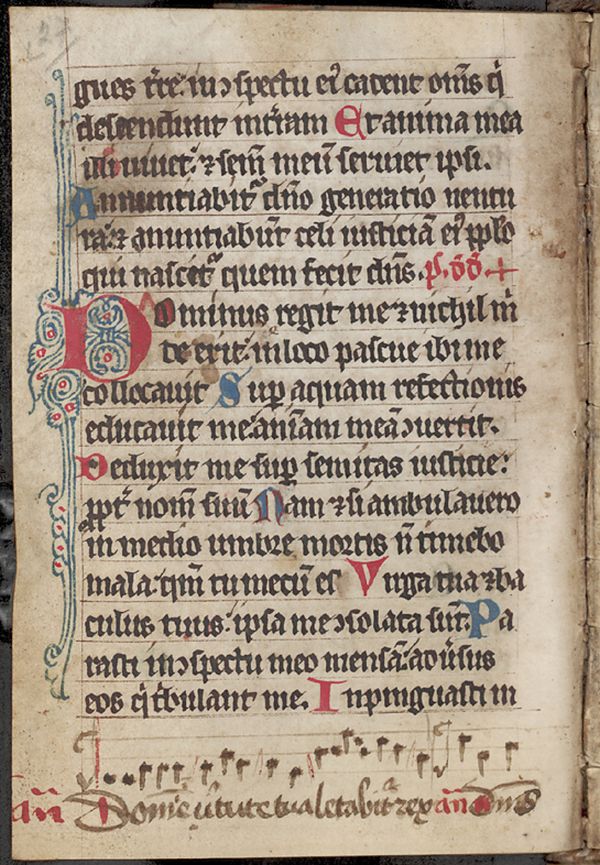 gues t're. in ɔspectu eiꝰ cadent om̄s q̄
descendunt in t'ram Et anima mea
illi uiuet: ⁊ sem̄ meū seruiet ipsi.
Annuntiabit' dn̄o generatio uentu
ra: ⁊ anuntiabūt celi iusticiā eiꝰ pp̄lo
qui nascet' quem fecit dn̄s. p̄s dd̄ +
Dominus regit me ⁊ nichil m̄
de erit: in loco pascue ibi me
collocauit Sup aquam refectionis
educauit me. animam meā ɔuertit.
Deduxit me sup semitas iusticie:
ppt' nom̄ suū Nam ⁊ si ambulauero
in medio umbre mortis n̄ timebo
mala: qm̄ tu mecū es Virga tua ⁊ ba
culus tuus: ipsa me ɔsolata sūt. Pa
rasti in ɔspectu meo mensā: adu'sus
eos q̄ t'bulant me. Inpinguasti in
an̄ Domīe ī u'tute tua letabit' rex an̄ Dn̄s